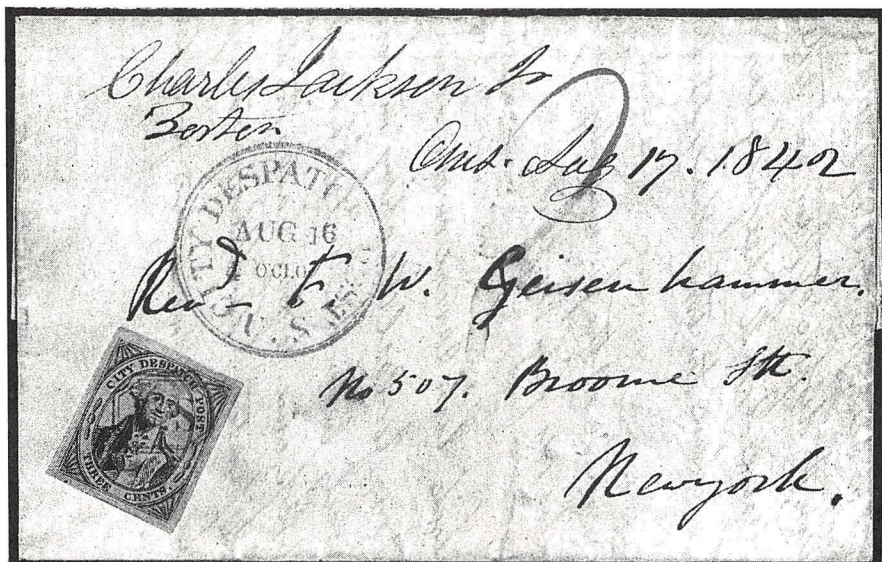 Charles Jackson Jr
Boston
Ans. Aug 17. 1842
CITY DESPATC
AUG 16
OCLO
U. S.
Revd F W. Geisenhammer.
No 507. Broome Stt.
Newyork.
CITY DESPATCH POST
THREE CENTS